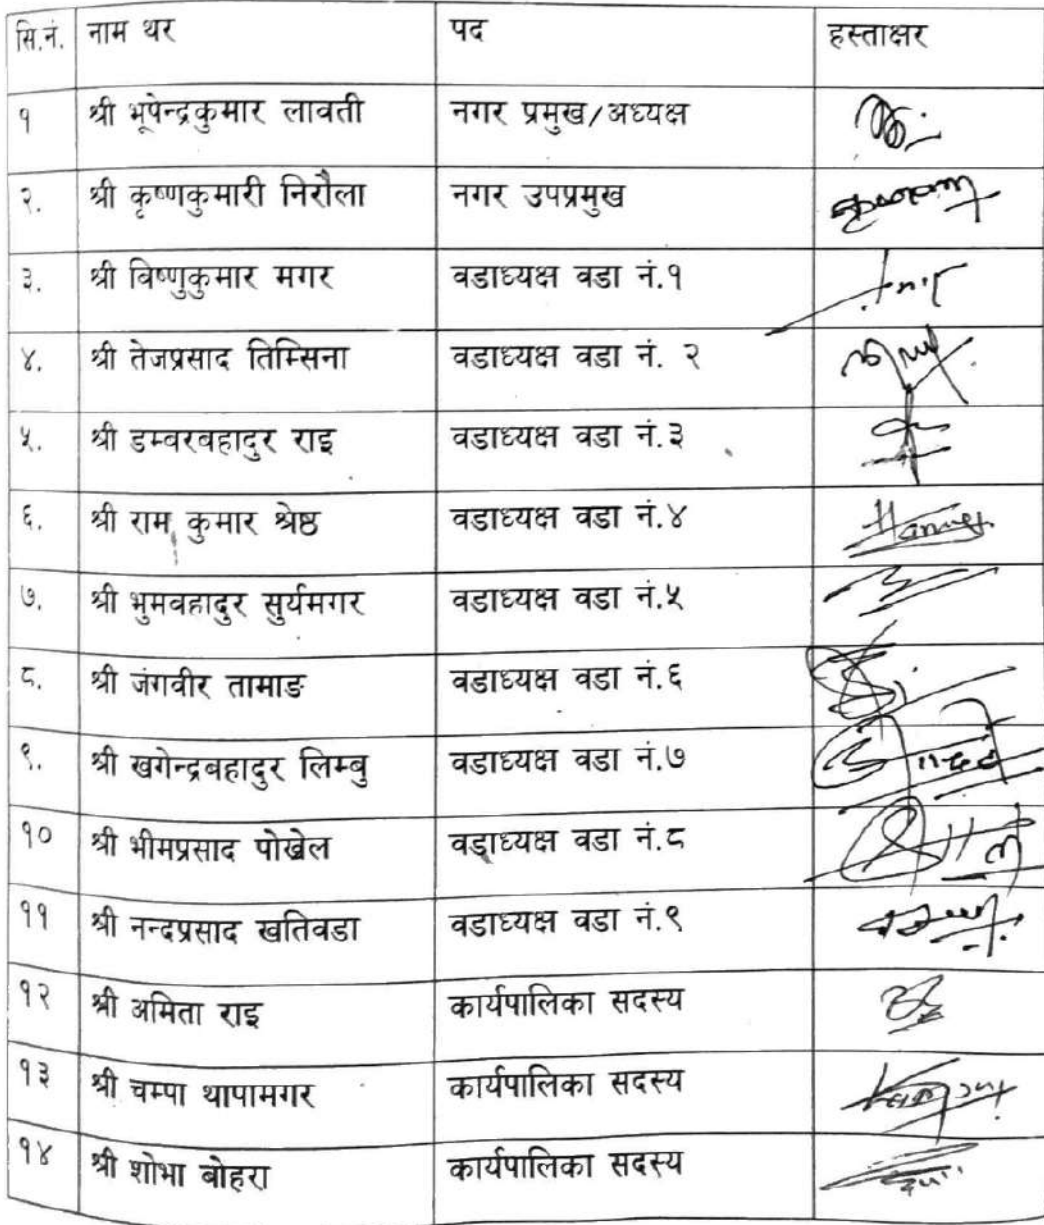 सि.नं. नाम थर पद हस्ताक्षर
१ श्री भूपेन्द्रकुमार लावती नगर प्रमुख/अध्यक्ष
२. श्री कृष्णकुमारी निरौला नगर उपप्रमुख
३. श्री बिष्णुकुमार मगर वडाध्यक्ष वडा नं.१
४. श्री तेजप्रसाद तिम्सिना वडाध्यक्ष वडा नं. २
५. श्री डम्बरबहादुर राइ वडाध्यक्ष वडा नं.३
६. श्री राम कुमार श्रेष्ठ वडाध्यक्ष वडा नं.४
७. श्री भुमवहादुर सुर्यमगर वडाध्यक्ष वडा नं.५
८. श्री जंगवीर तामाङ वडाध्यक्ष वडा नं.६
९. श्री खगेन्द्रबहादुर लिम्बु वडाध्यक्ष वडा नं.७
१० श्री भीमप्रसाद पोखेल वडाध्यक्ष वडा नं.८
११ श्री नन्दप्रसाद खतिवडा वडाध्यक्ष वडा नं.९
१२ श्री अमिता राइ कार्यपालिका सदस्य
१३ श्री चम्पा थापामगर कार्यपालिका सदस्य
१४ श्री शोभा बोहरा कार्यपालिका सदस्य